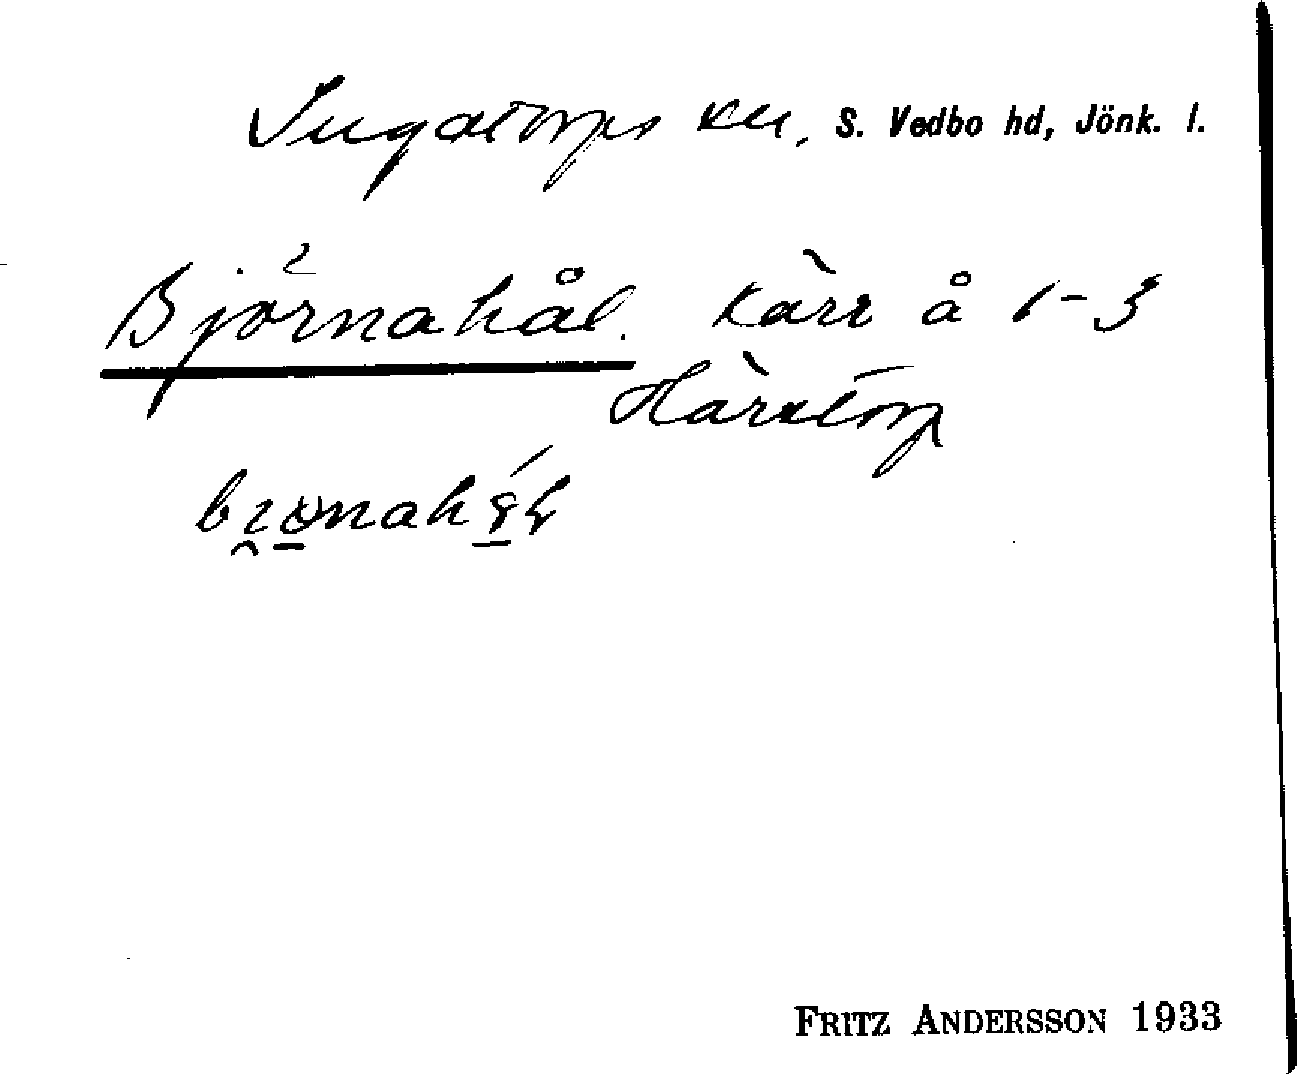 Ingatorps sn, S. Vedbo hd, Jönk. l.
Björnahål. kärr å 1-3
Härstorp
FRITZ ANDERSSON 1933